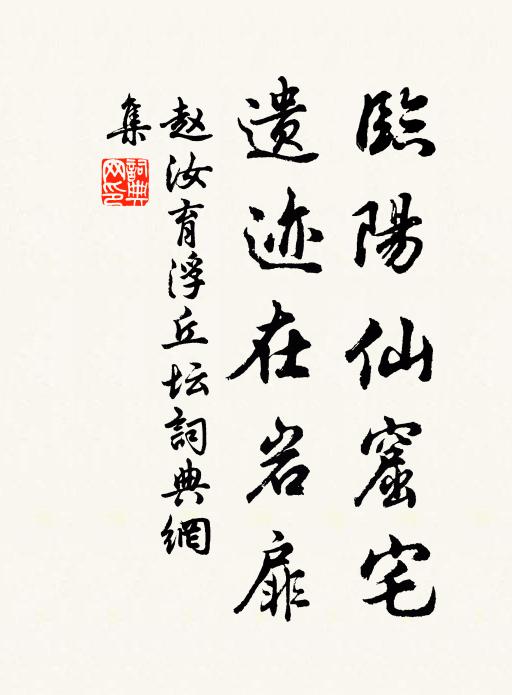 臨陽仙窟宅
遗迹在岩扉
赵汝育浮丘坛詞典網
集
詞典網印